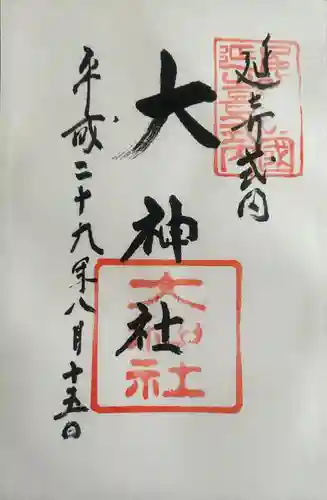 延喜式内
大神社
平成二十九年八月十五日
大神社